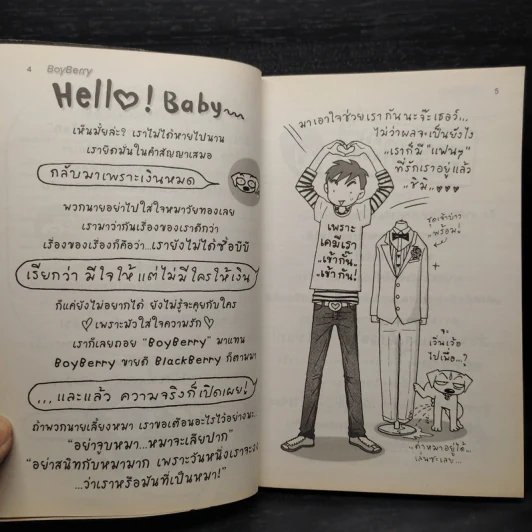 4 BoyBerry
Hello! Baby
เห็นมั้ยล่ะ? เราไม่ได้หายไปนาน
เรายึดมั่นในคำสัญญาเสมอ
กลับมาเพราะเงินหมด
พวกนายอย่าไปใส่ใจหมาวัยทองเลย
เรามาว่ากันเรื่องของเราดีกว่า
เรื่องของเรื่องก็คือว่า...เรายังไม่ได้ซื้อบีบี
เรียกว่า มีใจให้ แต่ไม่มีใครให้เงิน
ก็แค่ยังไม่อยากได้ ยังไม่รู้จะคุยกับใคร
เพราะมัวใส่ใจความรัก
เราก็เลยถอย "BoyBerry" มาแทน
BoyBerry ขายดี BlackBerry ก็ตามมา
...และแล้ว ความจริงก็เปิดเผย!
ถ้าพวกนายเลี้ยงหมา เราขอเตือนอะไรไว้อย่างนะ..
"อย่าจูบหมา...หมาจะเลียปาก"
"อย่าสนิทกับหมามาก เพราะวันหนึ่งเราจะงง
...ว่าเราหรือมันที่เป็นหมา!"
5
มาเอาใจช่วยเรากันนะจ๊ะเธอว์...
ไม่ว่าผลจะเป็นยังไง
..เราก็มี "แฟนๆ"
ที่รักเราอยู่แล้ว
..ชิมิ..
เพราะ
เคมีเรา
..เข้ากั๊น..
..เข้ากัน!
ชุดเจ้าบ่าว
..พร้อม!
จะ
เว่นเว้อ
ไปเพื่อ...?
..ถ้าหมาอยู่ได้..
เล่นซะเลย...